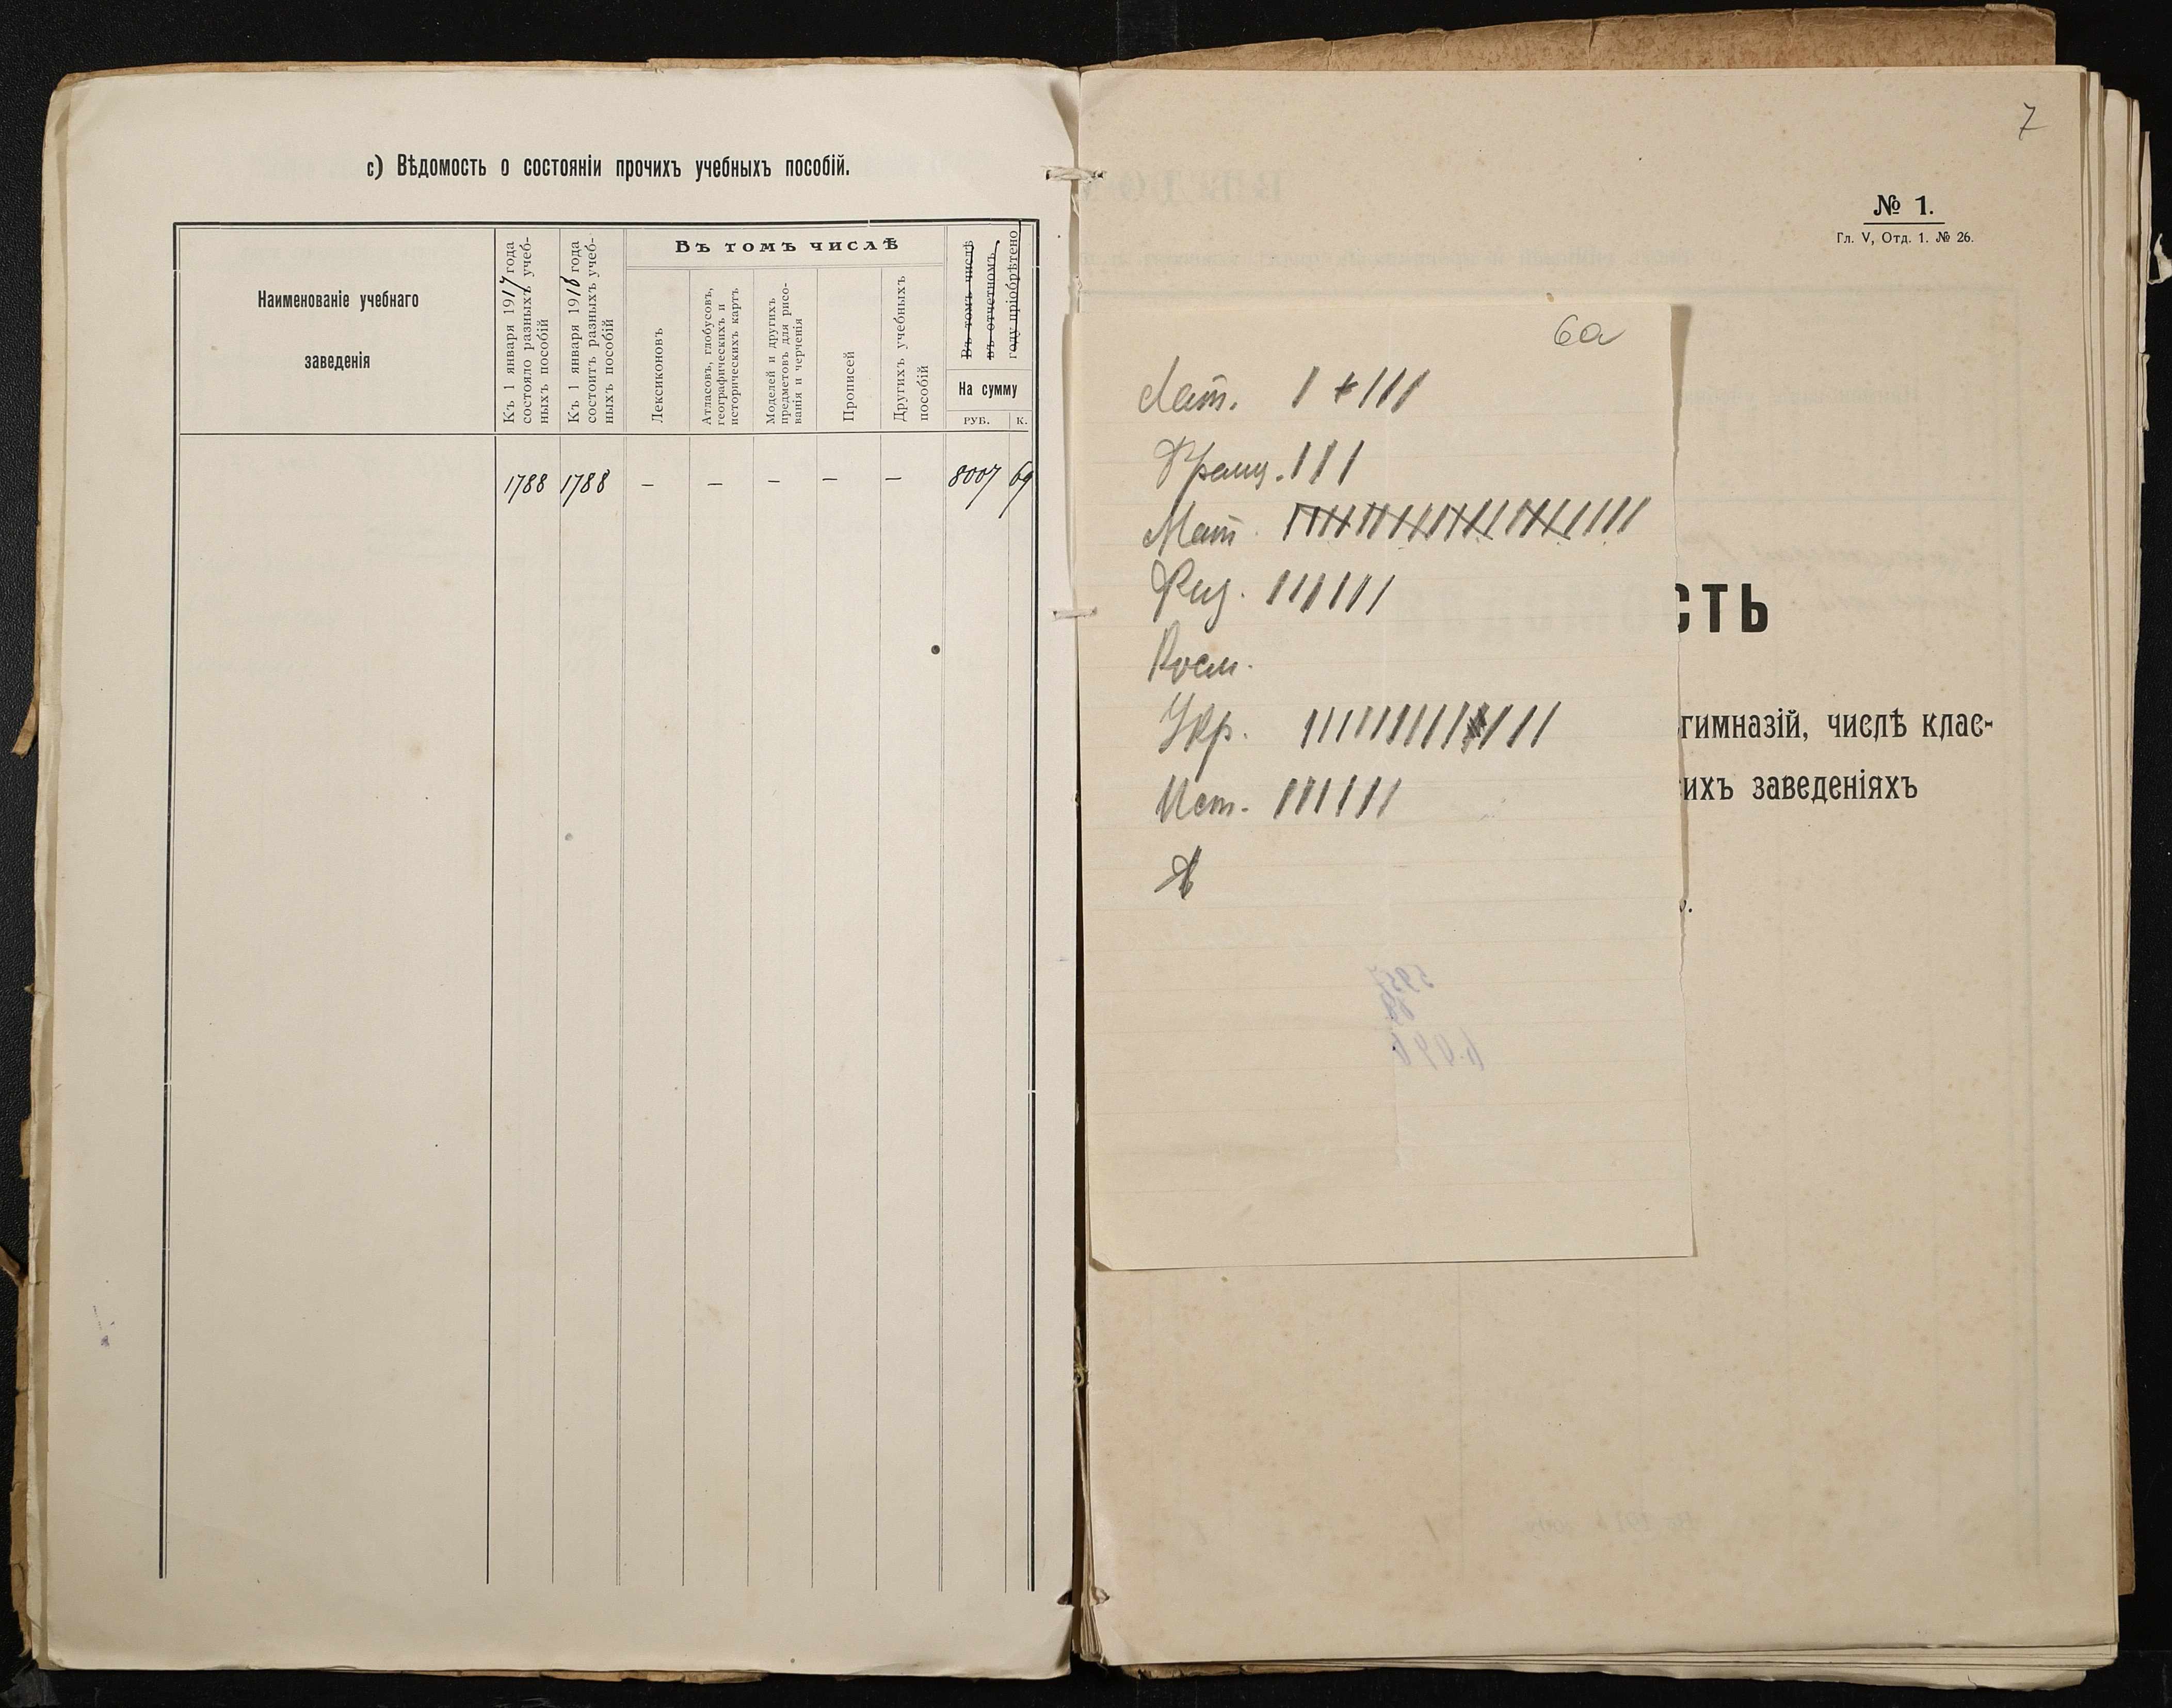 с) Вѣдомость о состояніи прочихъ учебныхъ пособій.
Наименованіе учебнаго
заведенія
Къ 1 января 1917 года
состояло разныхъ учеб-
ныхъ пособій
Къ 1 января 1918 года
состоитъ разныхъ учеб-
ныхъ пособій
Въ томъ числѣ
Лексиконовъ
Атласовъ, глобусовъ,
географическихъ и
историческихъ картъ
Моделей и другихъ
предметовъ для рисо-
ванія и черченія
Прописей
Другихъ учебныхъ
пособій
Въ томъ числѣ
въ отчетномъ
году пріобрѣтено
На сумму
РУБ. К.
1788 1788 – – – – – 8007 69
7
№ 1.
Гл. V, Отд. 1. № 26.
6а
Лат.
Франц.
Мат.
Физ.
Косм.
Укр.
Ист.
СТЬ
гимназій, числѣ клас-
ихъ заведеніяхъ